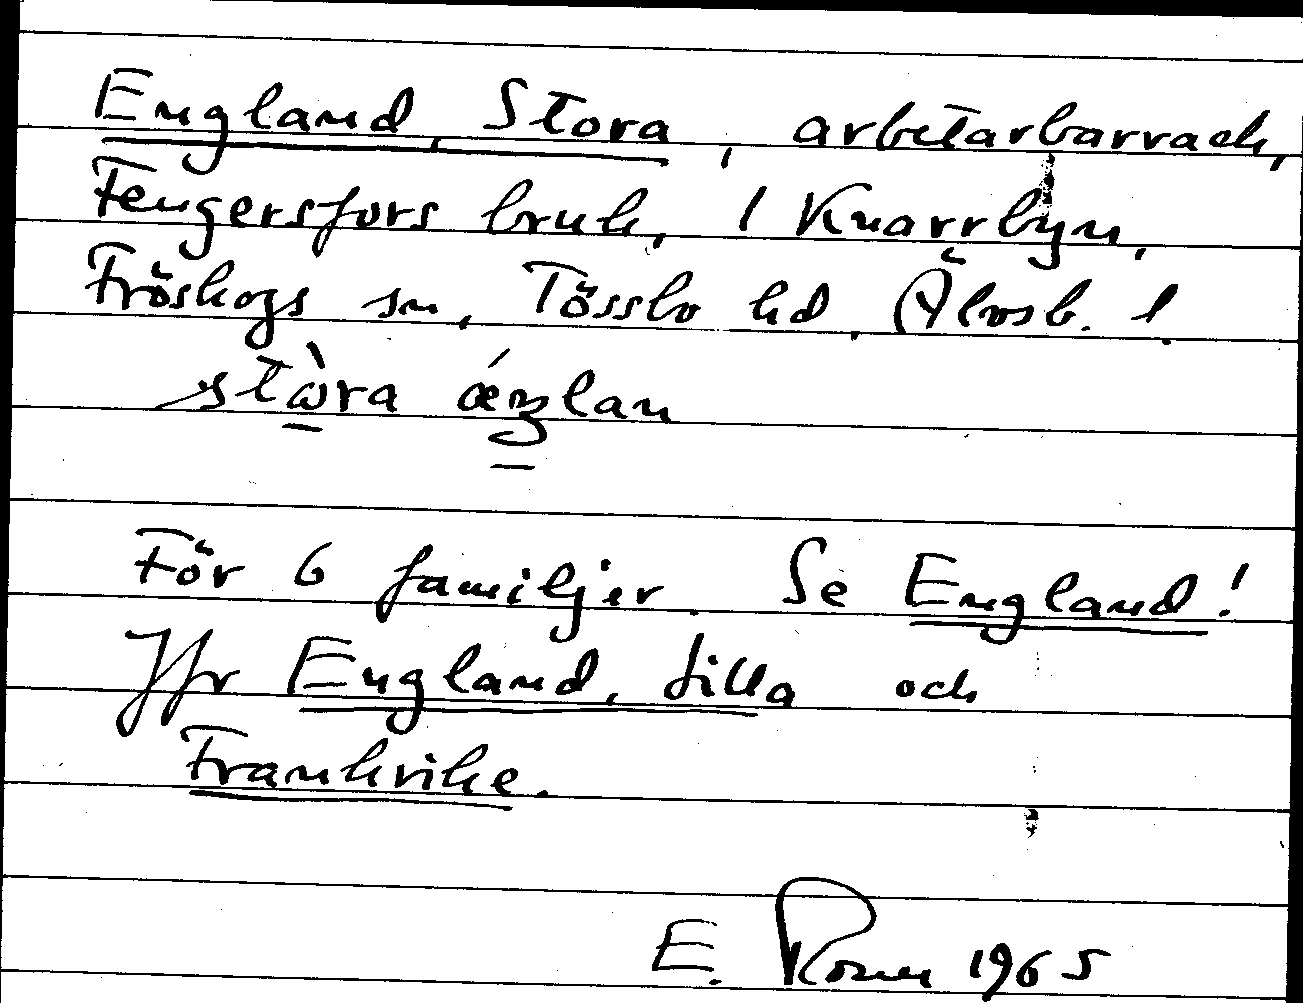 England, Stora, arbetarbarrack,
Fengersfors bruk, 1 Knarrbyn,
Fröskogs sn, Tössbo hd, Älvsb. l.
stὼra ǽŋlan
För 6 familjer. Se England!
Jfr England, Lilla och
Frankrike.
E. 1965